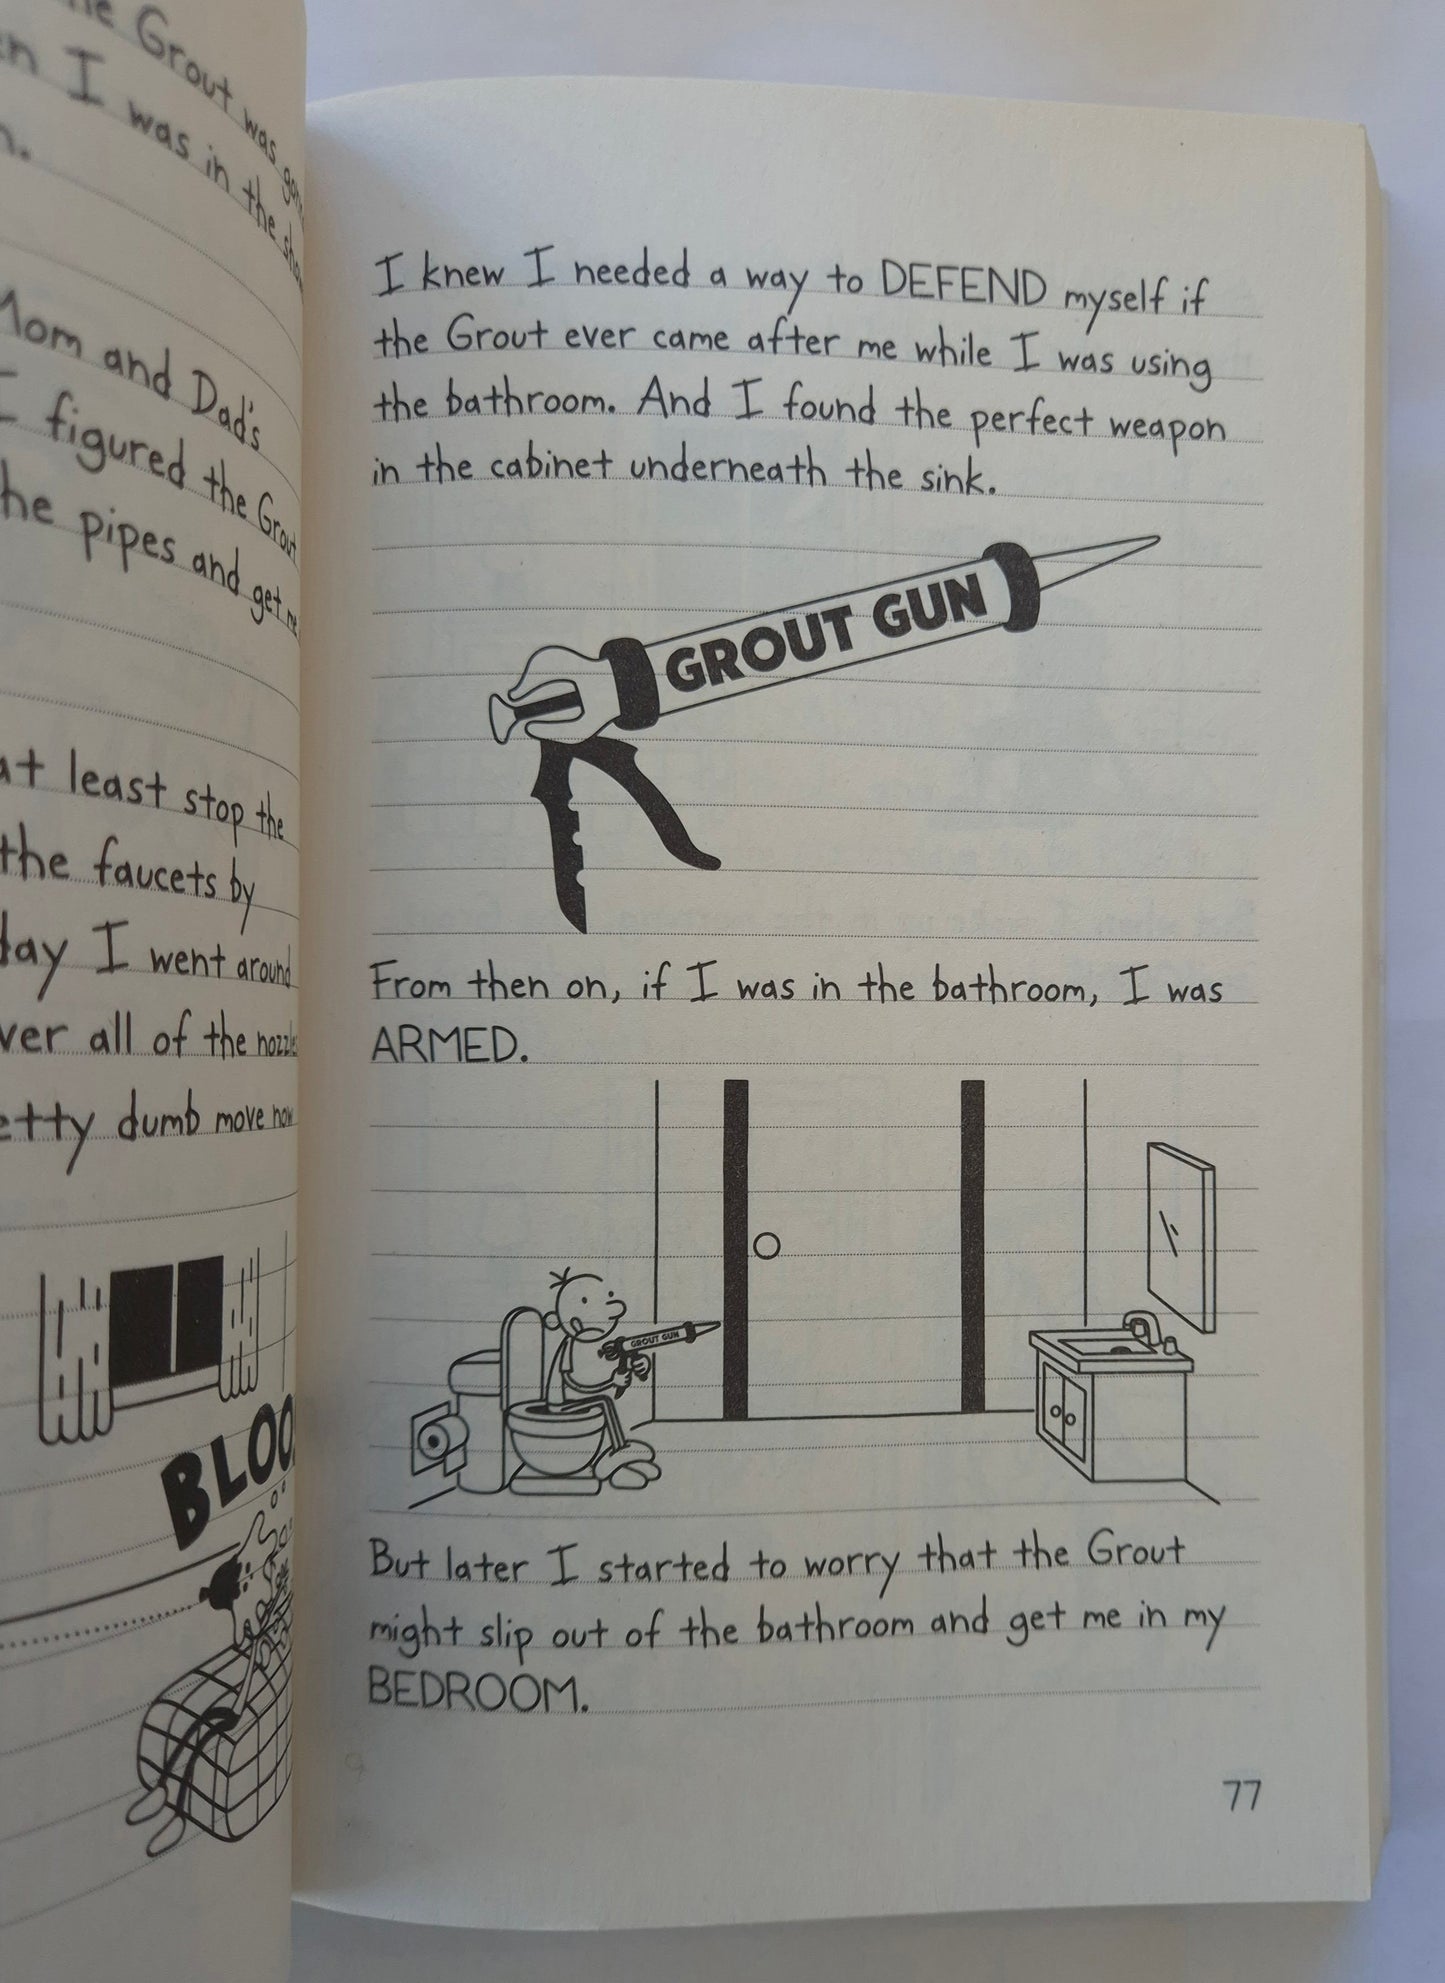 Grout was
I was in the
Mom and Dad's
I figured the Grout
the pipes and get me
at least stop the
the faucets by
day I went around
all of the nozzles
dumb move now
I knew I needed a way to DEFEND myself if
the Grout ever came after me while I was using
the bathroom. And I found the perfect weapon
in the cabinet underneath the sink.
GROUT GUN
From then on, if I was in the bathroom, I was
ARMED.
GROUT GUN
But later I started to worry that the Grout
might slip out of the bathroom and get me in my
BEDROOM.
77